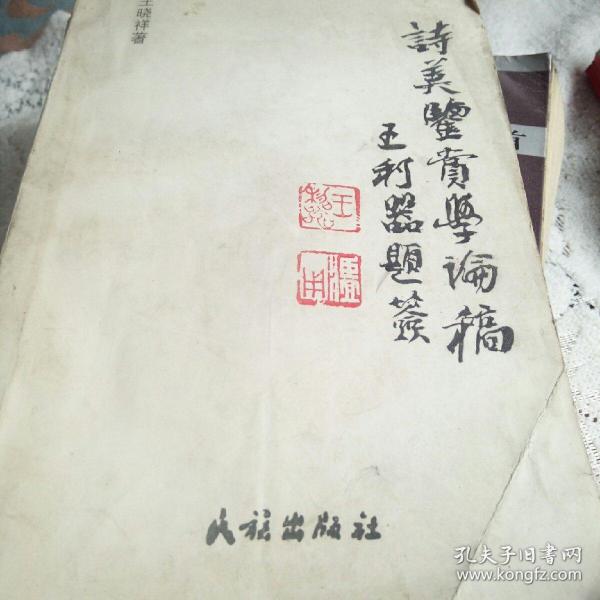 王晓祥著
詩美鑒賞學論稿
王利器題簽
民族出版社
孔夫子旧书网
www.kongfz.com